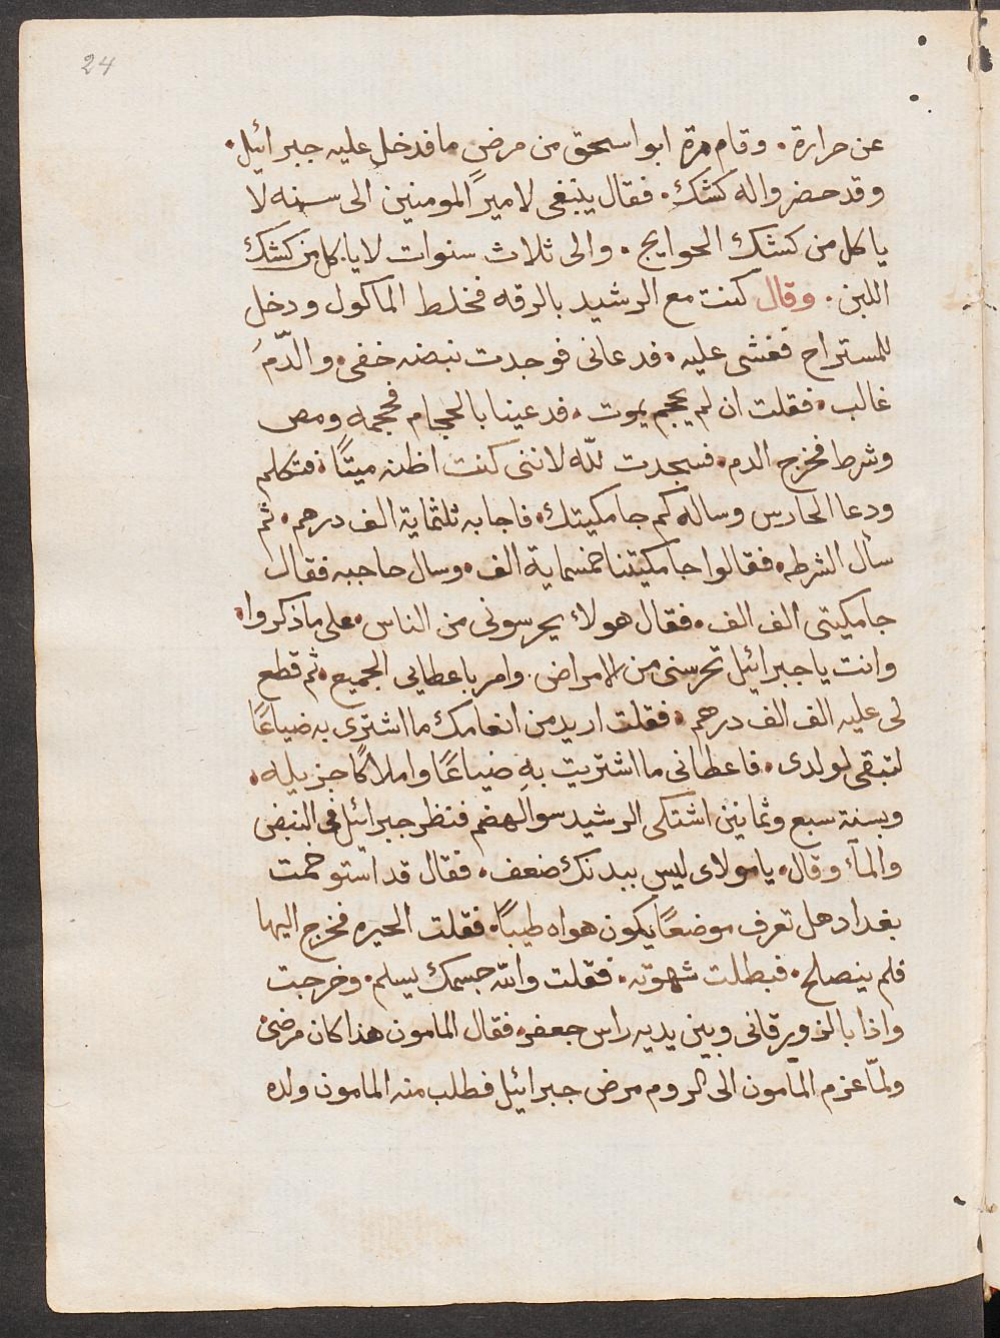 24
عن حرارة. وقام مرة ابو اسحق من مرضٍ ما فدخل عليه جبرائيل.
وقد حضر واله كشك. فقال ينبغى لامير المومنين الى سنه لا
ياكل من كشك الحوايج. والى ثلاث سنوات لا ياكل من كشك
اللبن. وقال كنت مع الرشيد بالرقه فخلط الماكول ودخل
للمستراح فغشى عليه. فدعانى فوجدت نبضه خفى. والدّمُ
غالب. فقلت ان لم يحجم يموت. فدعينا بالحجام فحجمه ومص
وشرط فخرج الدم. فسجدت للّه لاننى كنت اظنه ميتًا. فتكلم
ودعا الحارس وساله كم جامكيتك. فاجابه ثلثماية الف درهم. ثم
سأل الشرطه. فقالوا جامكيتنا خمسماية الف. وسال حاجبه فقال
جامكيتى الف الف. فقال هولاء يحرسونى من الناس. على ما ذكروا.
وانت يا جبرائيل تحرسنى من الامراض. وامر باعطايى الجميع. ثم قطع
لى عليه الف الف درهم. فقلت اريد من انعامك ما اشترى به ضياعًا
لتبقى لولدى. فاعطانى ما اشتريت بهِ ضياعًا واملاكًا جزيله.
وبسنة سبع وثمانين اشتكى الرشيد سو الهضم فنظر جبرائيل فى النبض
والمآء وقال. يا مولاى ليس ببدنك ضعف. فقال قد استوخمت
بغداد هل تعرف موضعًا يكون هواه طيبًا. فقلت الحيره فخرج اليها
فلم ينصلح. فبطلت شهوته. فقلت واللّه جسمك يسلم. وخرجت
واذا بالزويرقانى وبين يديه راس جعفر. فقال المامون هذا كان مرضى.
ولمّا عزم المامون الى الروم مرض جبرائيل فطلب منه المامون ولده